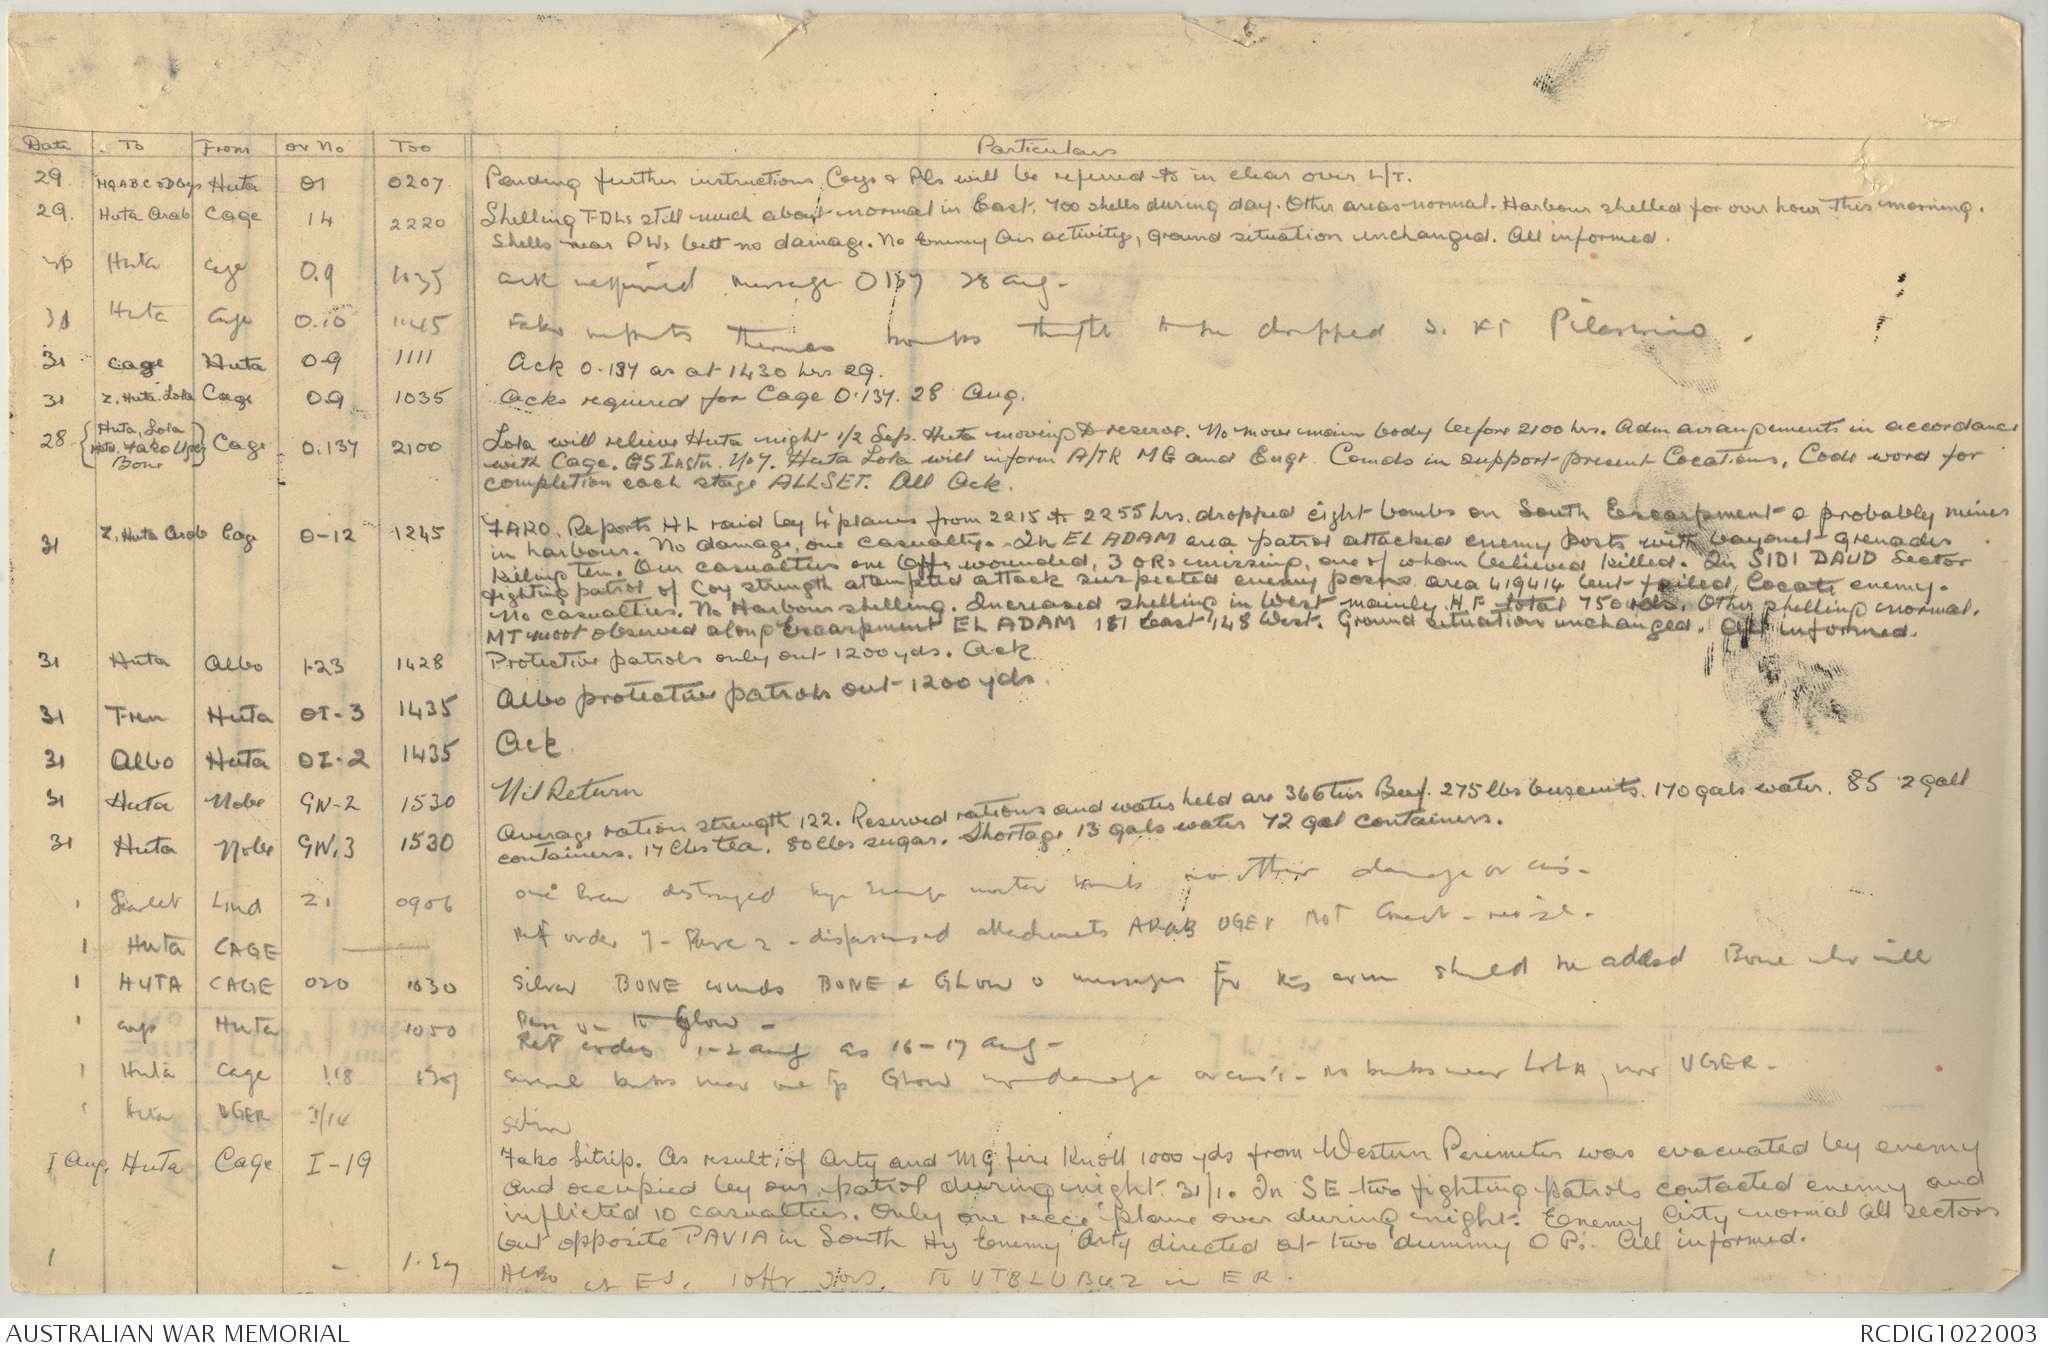 Date To From or No Too Particulars
29. HQ A B C & D Coys Huta 01 0207 Pending further instructions Coys & Pls will be referred to in clear over L/T.
29. Huta Arab Cage 14 2220 Shelling F.D.Ls still much about normal in East. 700 shells during day. Other areas normal. Harbour shelled for over hour this morning.
Shells near P.Ws but no damage. No Enemy Air activity, ground situation unchanged. All informed.
Huta Cage 0.9 1035 ack required message 0137 28 Aug -
31 Huta Cage 0.10 1145 Fako reports Thermos bombs thought to be dropped S. Pilastrino.
31 Cage Huta 0-9 1111 Ack 0.137 as at 1430 hrs 29.
31 Z. Huta. Lola Cage 09 1035 Acks required for Cage 0.137. 28 Aug.
28 Huta, Lola Fako Uger Bone Cage 0.137 2100 Lola will relieve Huta night 1/2 Sep. Huta moving to reserve. No move main body before 2100 hrs. Adm arrangements in accordance
with Cage. GS Instn. No 7. Huta Lola will inform A/TK MG and Engr Comds in support present Locations, Code word for
completion each stage ALLSET. All Ack.
31 Z. Huta Arab Cage 0-12 1245 FAKO. Reports HL raid by 4 planes from 2215 to 2255 hrs. dropped eight bombs on South Escarpment & probably mines
in harbour. No damage, one casualty. In EL ADAM area patrol attacked enemy posts with bayonet grenades
killing ten. Our casualties one Offr wounded, 3 ORs missing, one of whom believed killed. In SIDI DAUD Sector
fighting patrol of Coy strength attempted attack suspected enemy posns area 419414 but failed locate enemy.
No casualties. No Harbour shelling. Increased shelling in West mainly H.F. total 750 rds. Other shelling normal.
MT movt observed along Escarpment EL ADAM 181 East 148 West. Ground situation unchanged. All informed.
31 Huta Albo 1-23 1428 Protective patrols only out 1200 yds. Ack
31 Huta OI-3 1435 Albo protective patrols out 1200 yds.
31 Albo Huta OI-2 1435 Ack.
31 Huta Nobe GN-2 1530 Nil Return
31 Huta Nobe GN.3 1530 Average ration strength 122. Reserved rations and water held are 366 tins Beef. 275 lbs buscuits. 170 gals water. 85 2 gall
containers. 17 lbs tea. 80 lbs sugar. Shortage 13 gals water 72 gal containers.
1 Lind 21 0906 one Bren destroyed by Enemy mortar bombs no other damage or cas.
1 Huta CAGE Ref order 7 - Para 2 - attachments ARAB UGER NOT
1 HUTA CAGE 020 1030 Silver BONE BONE & GLOW messages for this should be added Bone who will
pass on to Glow -
1 Huta 1050 Ref order 1-2 Aug as 16-17 Aug -
1 Huta Cage 118 Several bombs near GLOW no damage - no bombs near LOLA, nor UGER -
1 Huta UGER
1 Aug. Huta Cage I-19 Fako Sitrip. As result of Arty and MG fire Knoll 1000 yds from Western Perimeter was evacuated by enemy
and occupied by our patrol during night 31/1. In SE two fighting patrols contacted enemy and
inflicted 10 casualties. Only one recce plane over during night. Enemy Arty normal all sectors
but opposite PAVIA in South Hy Enemy Arty directed at two dummy O Ps. All informed.
1 - ALBO in ER.
AUSTRALIAN WAR MEMORIAL
RCDIG1022003